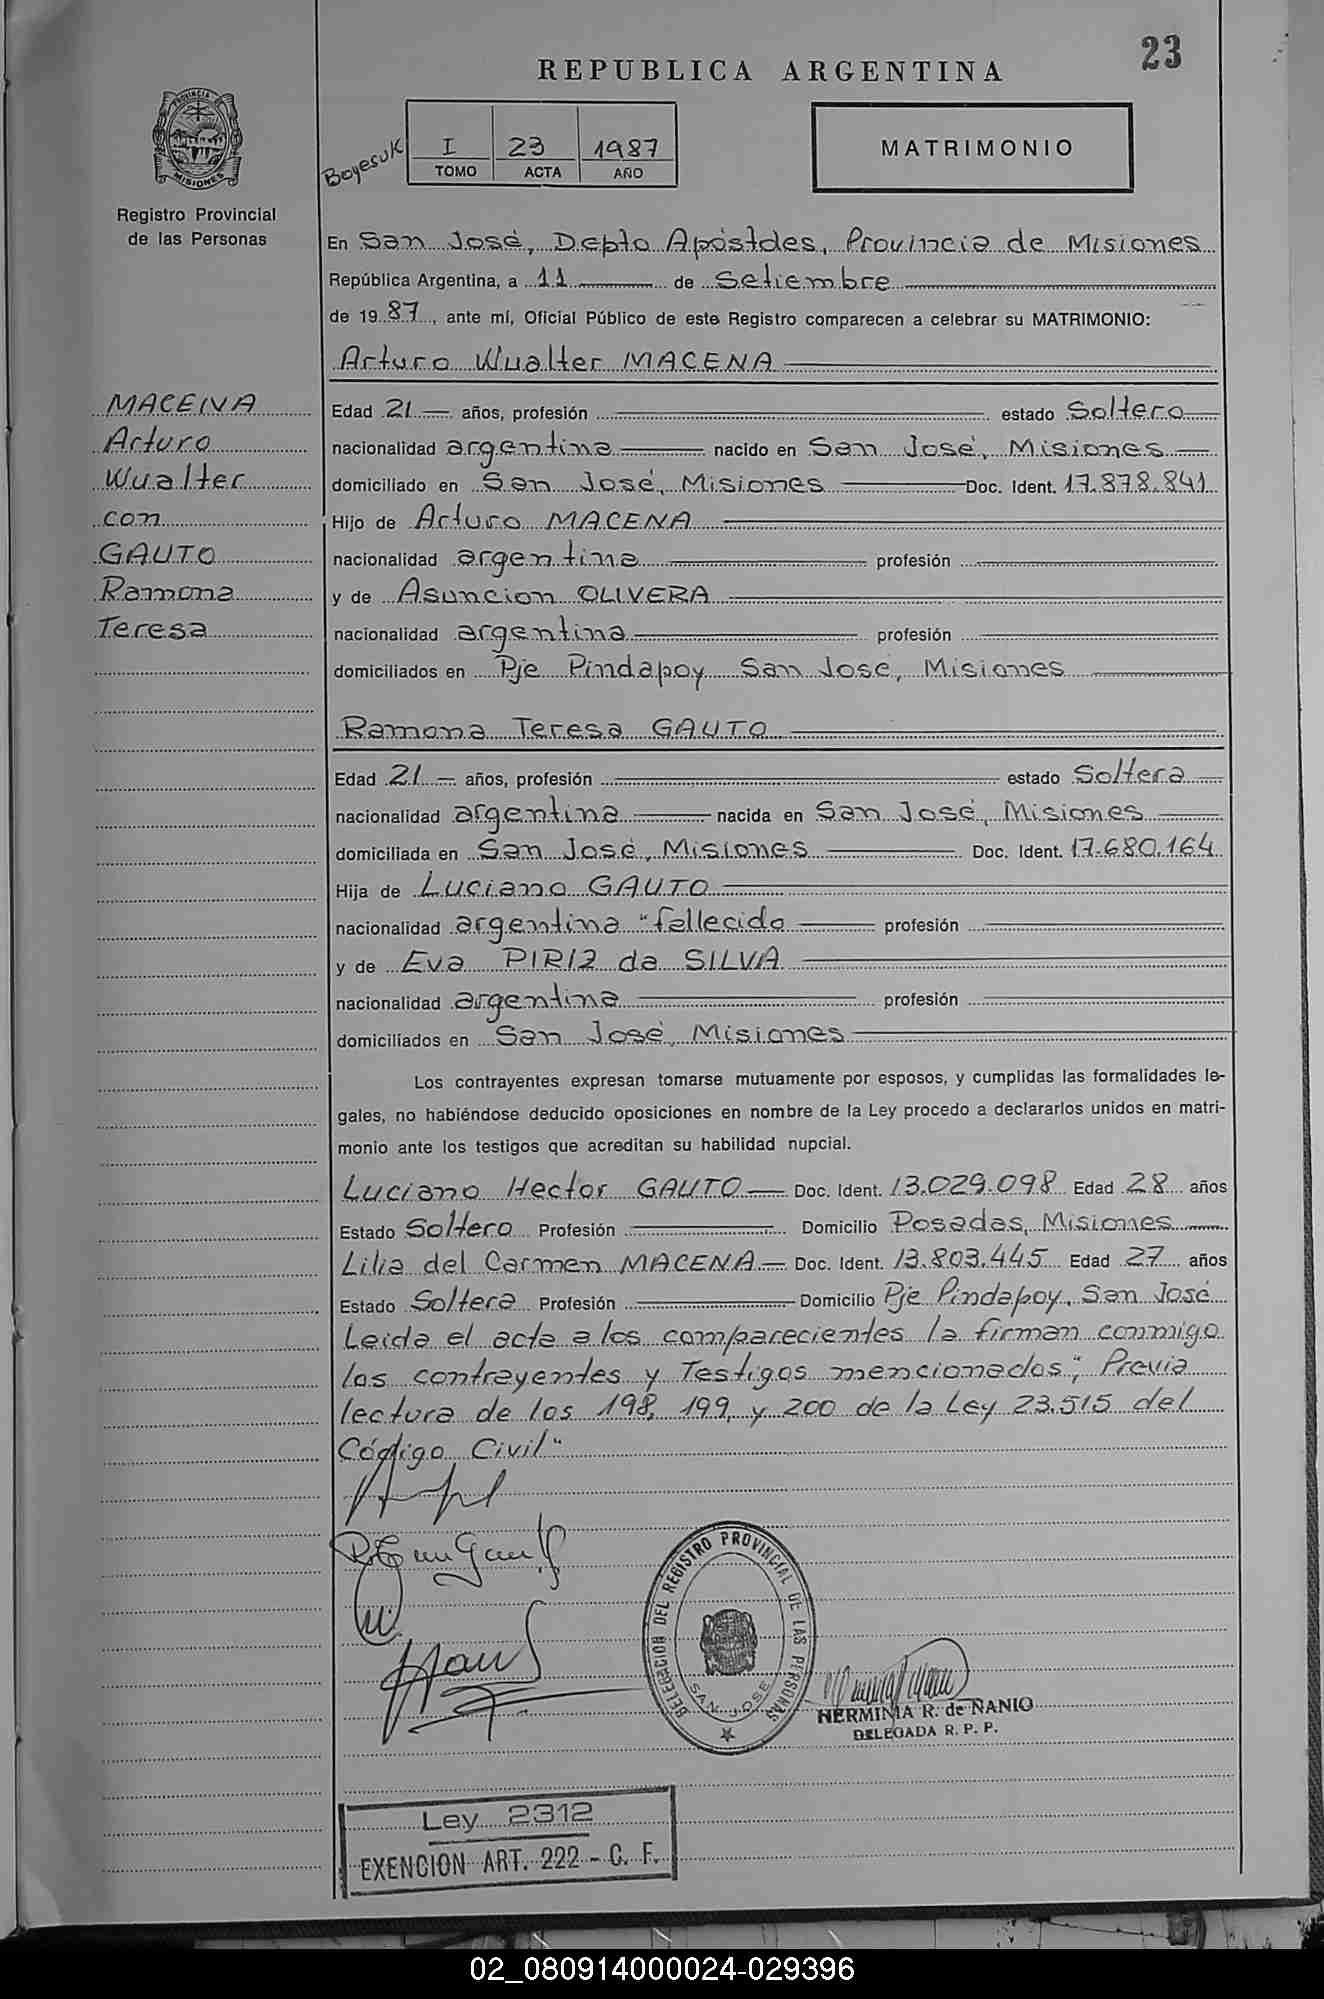 23
REPUBLICA ARGENTINA
PROVINCIA DE
MISIONES
Registro Provincial
de las Personas
Boyesuk
I 23 1987
TOMO ACTA AÑO
MATRIMONIO
En San José, Depto Apóstoles, Provincia de Misiones
República Argentina, a 11 de Setiembre
de 1987, ante mí, Oficial Público de este Registro comparecen a celebrar su MATRIMONIO:
Arturo Wualter MACENA
MACENA
Arturo
Wualter
con
GAUTO
Ramona
Teresa
Edad 21 años, profesión estado Soltero
nacionalidad argentina nacido en San José, Misiones
domiciliado en San José, Misiones Doc. Ident. 17.878.841
Hijo de Arturo MACENA
nacionalidad argentina profesión
y de Asuncion OLIVERA
nacionalidad argentina profesión
domiciliados en Pje Pindapoy San José, Misiones
Ramona Teresa GAUTO
Edad 21 años, profesión estado Soltera
nacionalidad argentina nacida en San José, Misiones
domiciliada en San José, Misiones Doc. Ident. 17.680.164
Hija de Luciano GAUTO
nacionalidad argentina "fallecido profesión
y de Eva PIRIZ da SILVA
nacionalidad argentina profesión
domiciliados en San José, Misiones
Los contrayentes expresan tomarse mutuamente por esposos, y cumplidas las formalidades le-
gales, no habiéndose deducido oposiciones en nombre de la Ley procedo a declararlos unidos en matri-
monio ante los testigos que acreditan su habilidad nupcial.
Luciano Hector GAUTO Doc. Ident. 13.029.098 Edad 28 años
Estado Soltero Profesión Domicilio Posadas, Misiones
Lilia del Carmen MACENA Doc. Ident. 13.803.445 Edad 27 años
Estado Soltera Profesión Domicilio Pje Pindapoy, San José
Leida el acta a los comparecientes la firman conmigo
los contrayentes y Testigos mencionados; "Previa
lectura de los 198, 199, y 200 de la Ley 23.515 del
Código Civil"
DELEGACION DEL REGISTRO PROVINCIAL DE LAS PERSONAS
SAN JOSE
HERMINIA R. de ÑANIO
DELEGADA R. P. P.
Ley 2312
EXENCION ART. 222 - C. F.
02_080914000024-029396